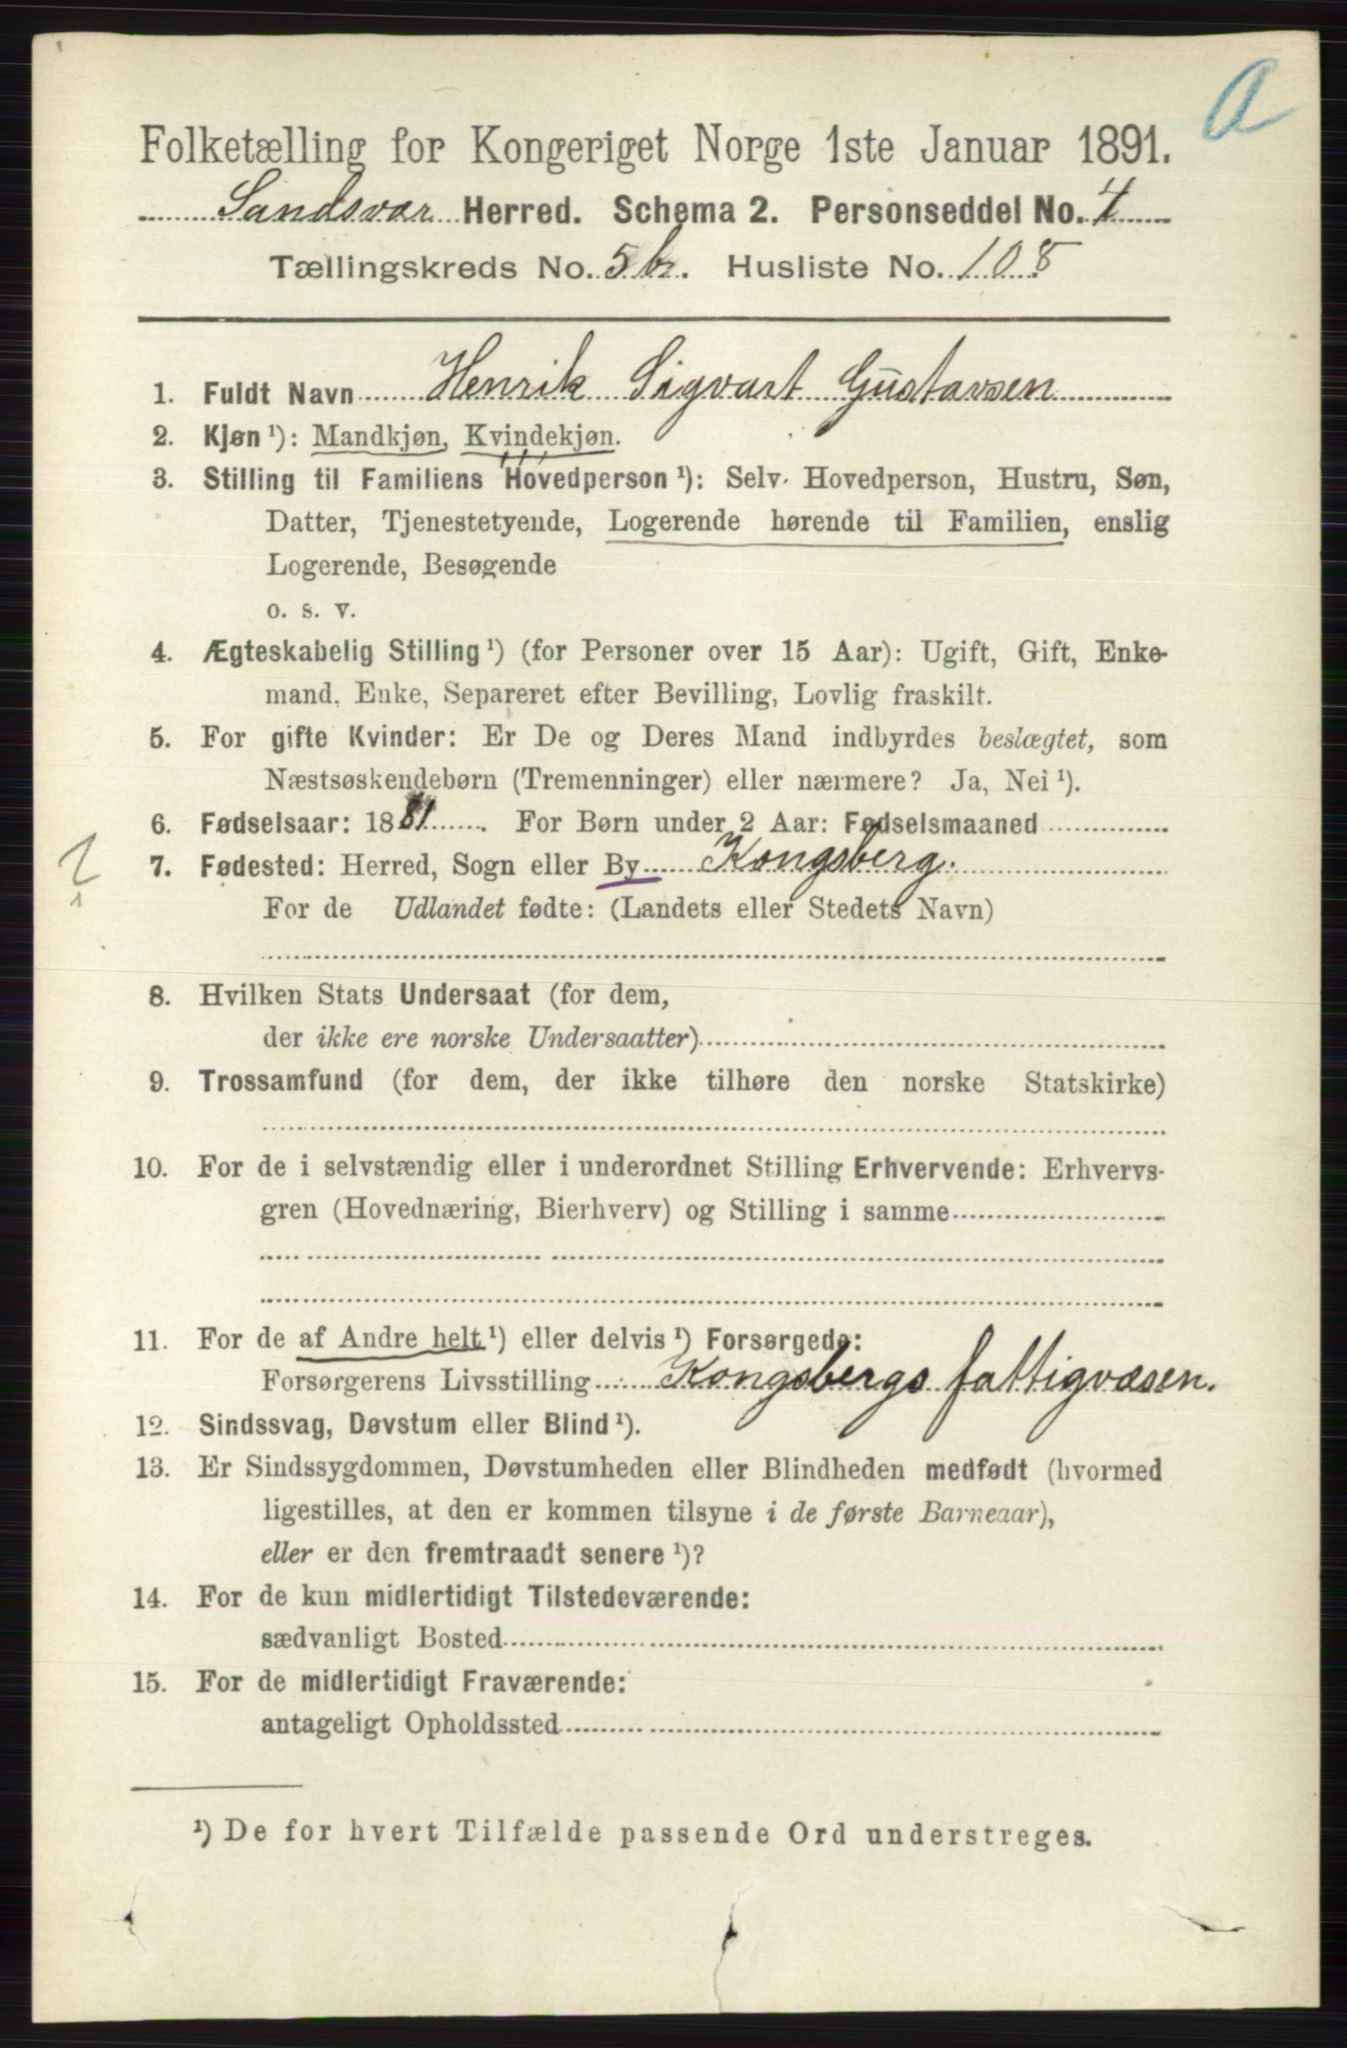 a
Folketælling for Kongeriget Norge 1ste Januar 1891.
Sandsvær Herred. Schema 2. Personseddel No. 4
Tællingskreds No. 5b. Husliste No. 108
1. Fuldt Navn Henrik Sigvart Gustavsen
2. Kjøn ¹): Mandkjøn, Kvindekjøn.
3. Stilling til Familiens Hovedperson ¹): Selv Hovedperson, Hustru, Søn,
Datter, Tjenestetyende, Logerende hørende til Familien, enslig
Logerende, Besøgende
o. s. v.
4. Ægteskabelig Stilling ¹) (for Personer over 15 Aar): Ugift, Gift, Enke-
mand, Enke, Separeret efter Bevilling, Lovlig fraskilt.
5. For gifte Kvinder: Er De og Deres Mand indbyrdes beslægtet, som
Næstsøskendebørn (Tremenninger) eller nærmere? Ja, Nei ¹).
6. Fødselsaar: 1881. For Børn under 2 Aar: Fødselsmaaned
?
7. Fødested: Herred, Sogn eller By Kongsberg.
For de Udlandet fødte: (Landets eller Stedets Navn)
8. Hvilken Stats Undersaat (for dem,
der ikke ere norske Undersaatter)
9. Trossamfund (for dem, der ikke tilhøre den norske Statskirke)
10. For de i selvstændig eller i underordnet Stilling Erhvervende: Erhvervs-
gren (Hovednæring, Bierhverv) og Stilling i samme
11. For de af Andre helt ¹) eller delvis ¹) Forsørgede:
Forsørgerens Livsstilling Kongsbergs fattigvæsen.
12. Sindssvag, Døvstum eller Blind ¹).
13. Er Sindssygdommen, Døvstumheden eller Blindheden medfødt (hvormed
ligestilles, at den er kommen tilsyne i de første Barneaar),
eller er den fremtraadt senere ¹)?
14. For de kun midlertidigt Tilstedeværende:
sædvanligt Bosted
15. For de midlertidigt Fraværende:
antageligt Opholdssted
¹) De for hvert Tilfælde passende Ord understreges.